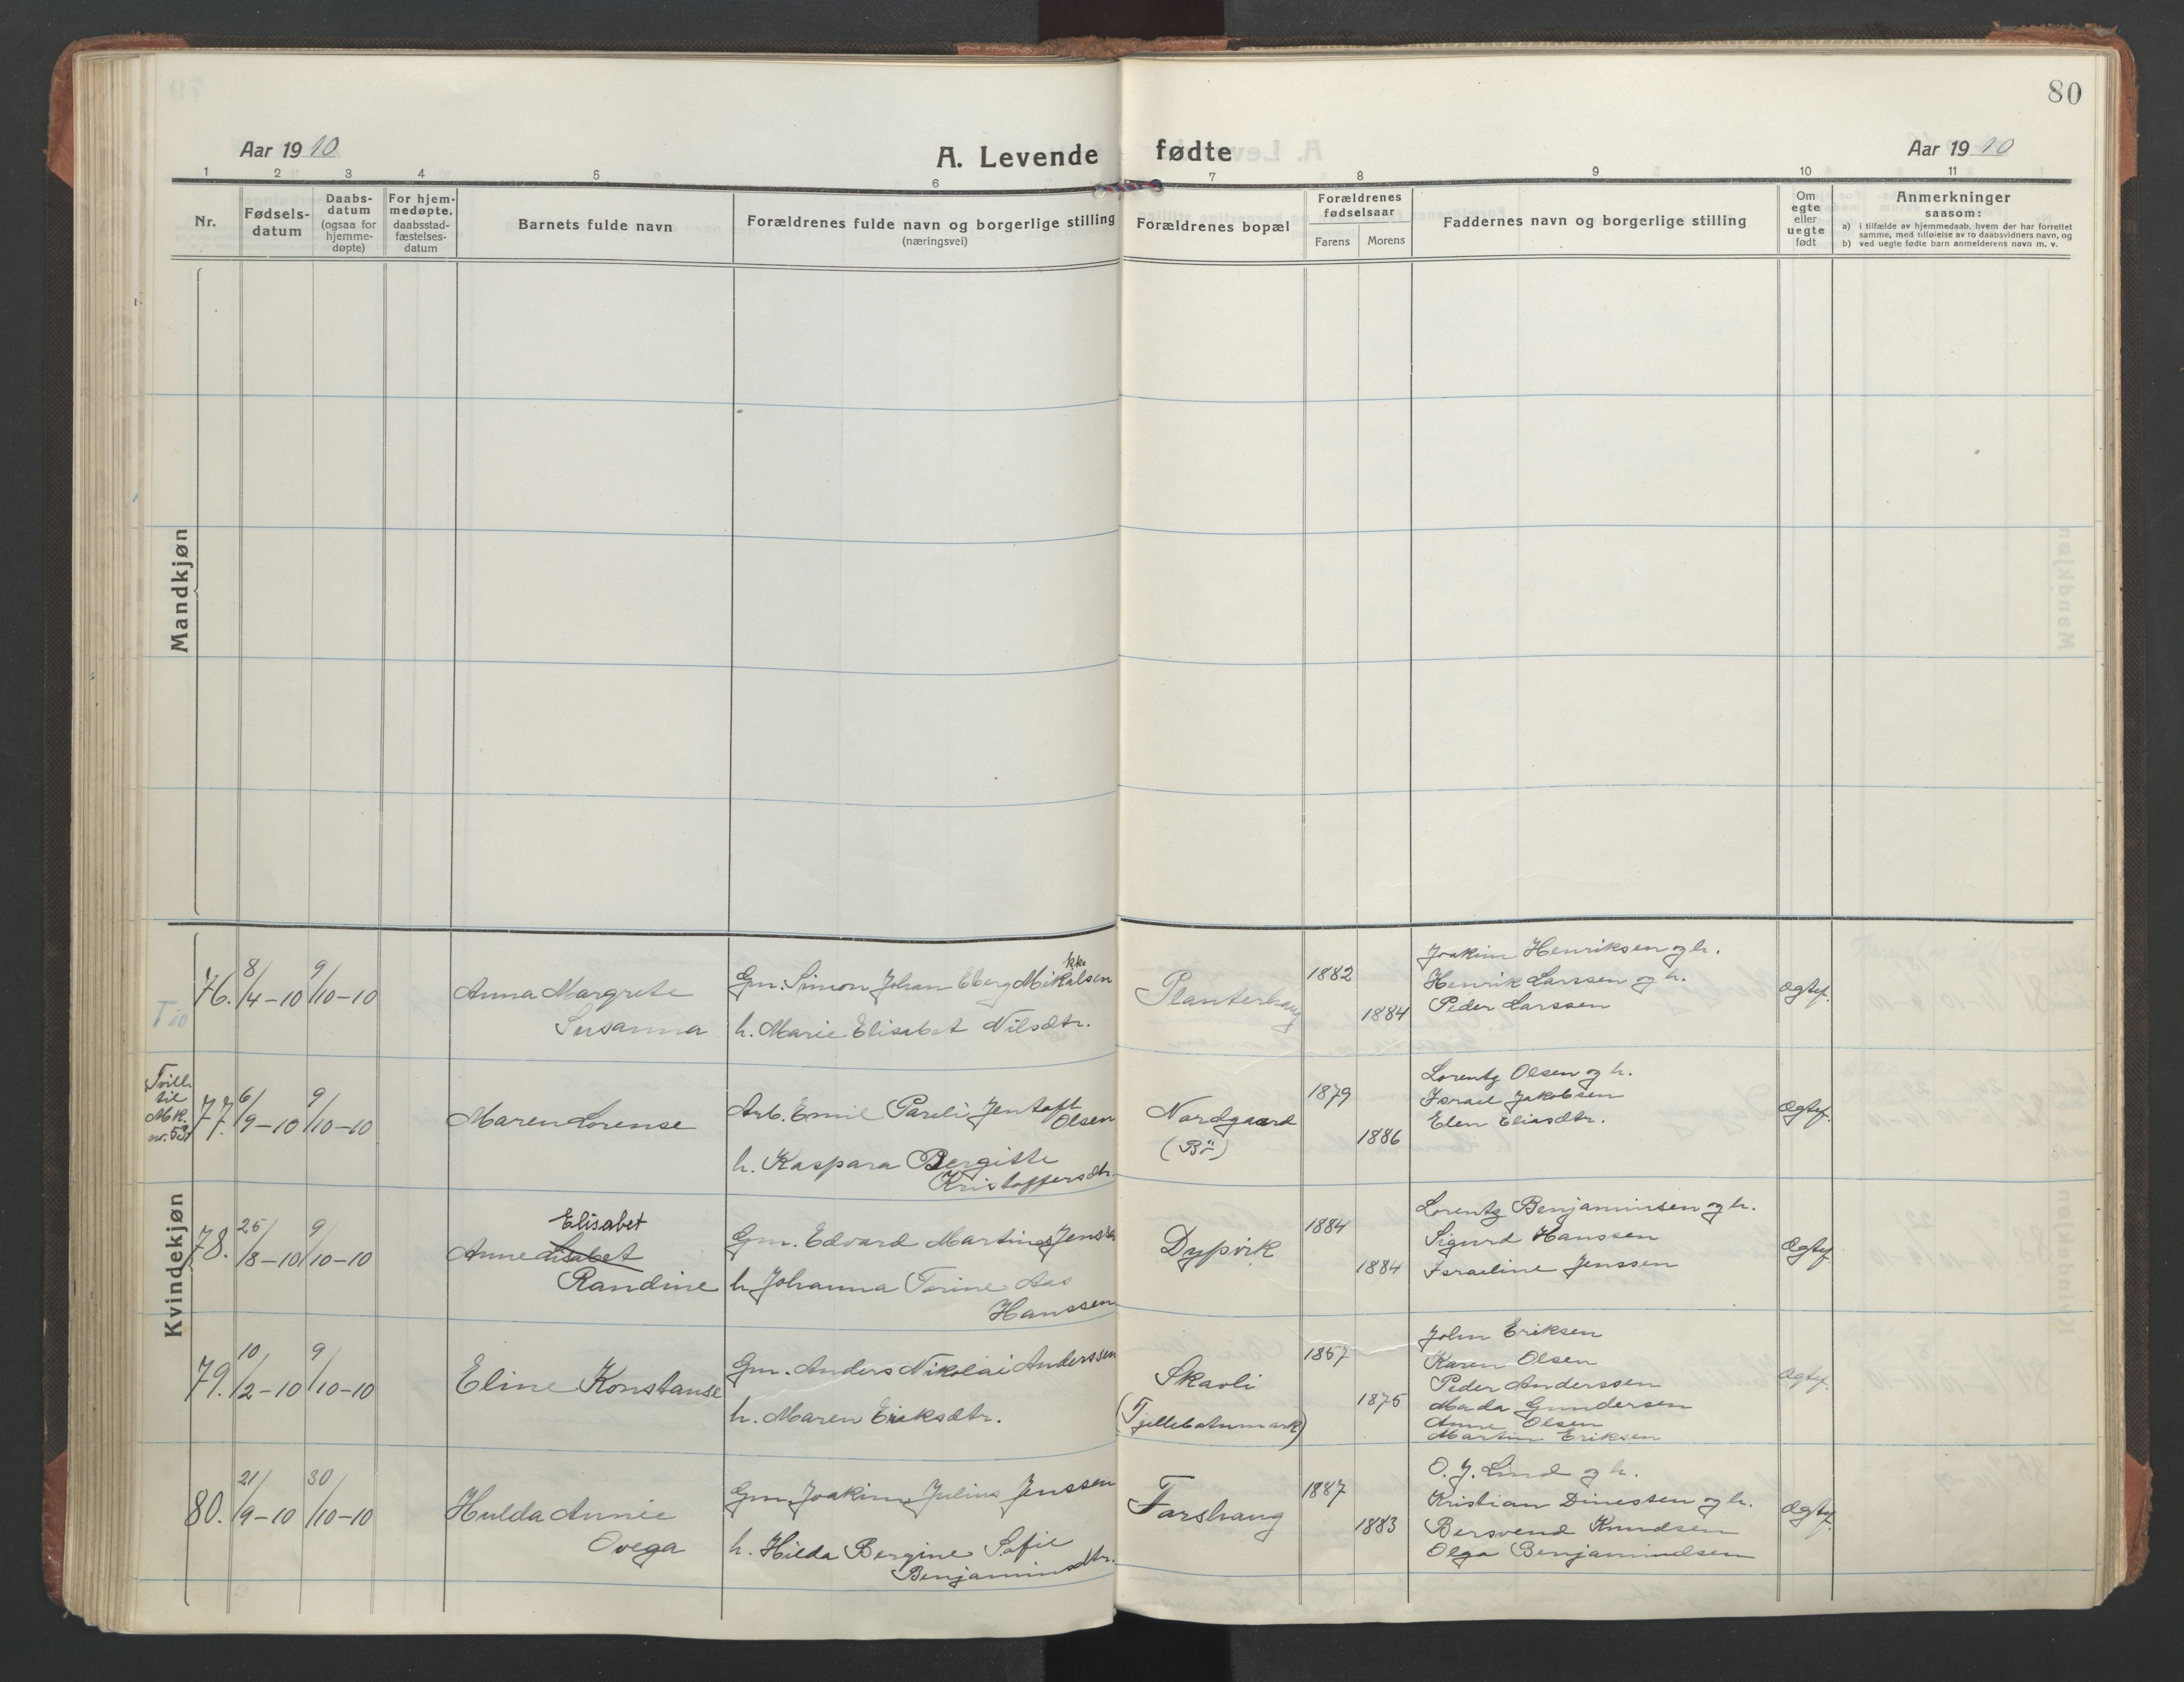 80
Aar 1910
A. Levende fødte
Aar 1910
1 2 3 4 5 6 7 8 9 10 11
Nr.
Fødsels-
datum
Daabs-
datum
(ogsaa for
hjemme-
døpte)
For hjem-
medøpte,
daabsstad-
fæstelses-
datum
Barnets fulde navn
Forældrenes fulde navn og borgerlige stilling
(næringsvei)
Forældrenes bopæl
Forældrenes
fødselsaar
Farens Morens
Faddernes navn og borgerlige stilling
Om
egte
eller
uegte
født
Anmerkninger
saasom:
a) i tilfælde av hjemmedaab, hvem der har forrettet
samme, med tilføielse av to daabsvidners navn, og
b) ved uegte fødte barn anmelderens navn m. v.
Mandkjøn
Kvindekjøn
76. 8/4-10 9/10-10
Anna Margrete
Susanna
Gm. Simon Johan Eberg Mikalsen
kk
h. Marie Elisabet Nilsdtr.
Planterhaug
1882
1884
Joakim Henriksen og h.
Henrik Larssen og h.
Peder Larssen
Ægtef.
Tvill.
til
Mk.
nr. 53
77. 6/9-10 9/10-10
Maren Lorense
Arb. Emil Pareli Jentoft
Olsen
h. Kaspara Bergitte
Kristoffersdtr.
Nordgaard
(Bö)
1879
1886
Lorentz Olsen og h.
Israel Jakobsen
Elen Eliasdtr.
Ægtef.
78. 25/8-10 9/10-10
Elisabet
Anne Lisabet
Randine
Gm. Edvard Martines Jenssen
h. Johanna Torine Aas
Hanssen
Dypvik
1884
1884
Lorentz Benjaminsen og h.
Sigurd Hanssen
Israeline Jenssen
Ægtef.
79. 10/2-10 9/10-10
Eline Konstanse
Gm. Anders Nikolai Anderssen
h. Maren Eriksdtr.
Skavli
(Tjellebotnmark)
1867
1875
John Eriksen
Karen Olsen
Peder Anderssen
Mada Gundersen
Anne Olsen
Martin Eriksen
Ægtef.
80. 21/9-10 30/10-10
Hulda Annie
Ovega
Gm. Joakim Julius Jenssen
h. Hilda Bergine Sofie
Benjaminsdtr.
Forshaug
1887
1883
O. J. Lind og h.
Kristian Dinessen og h.
Bersvend Knudsen
Olga Benjaminsen
Ægtef.